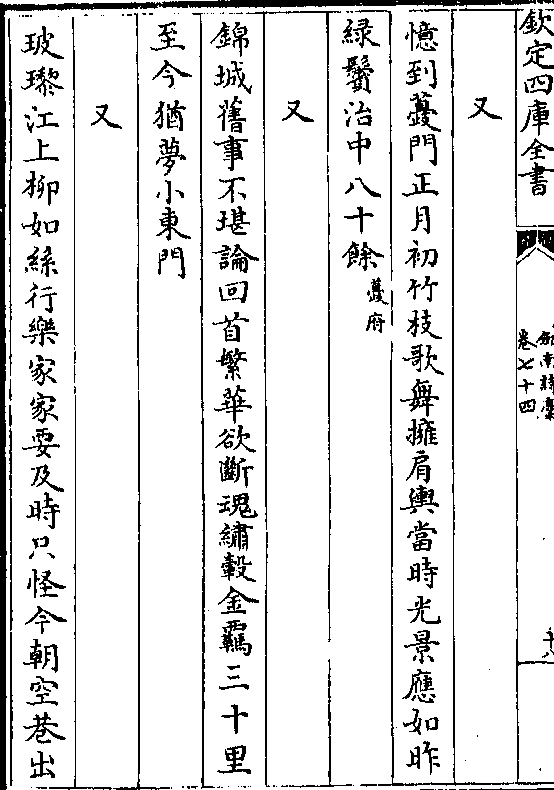 欽定四庫全書
劍南詩藁
卷七十四
十八
又
憶到夔門正月初竹枝歌舞擁肩輿當時光景應如昨
緑鬢治中八十餘夔府
又
錦城舊事不堪論回首繁華欲斷魂繡轂金羈三十里
至今猶夢小東門
又
玻瓈江上柳如絲行樂家家要及時只怪今朝空巷出